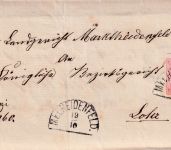 Landgericht Marktheidenfeld
An
Königliche Bezirksgericht
MT. HEIDENFELD.
19
10
Lohr